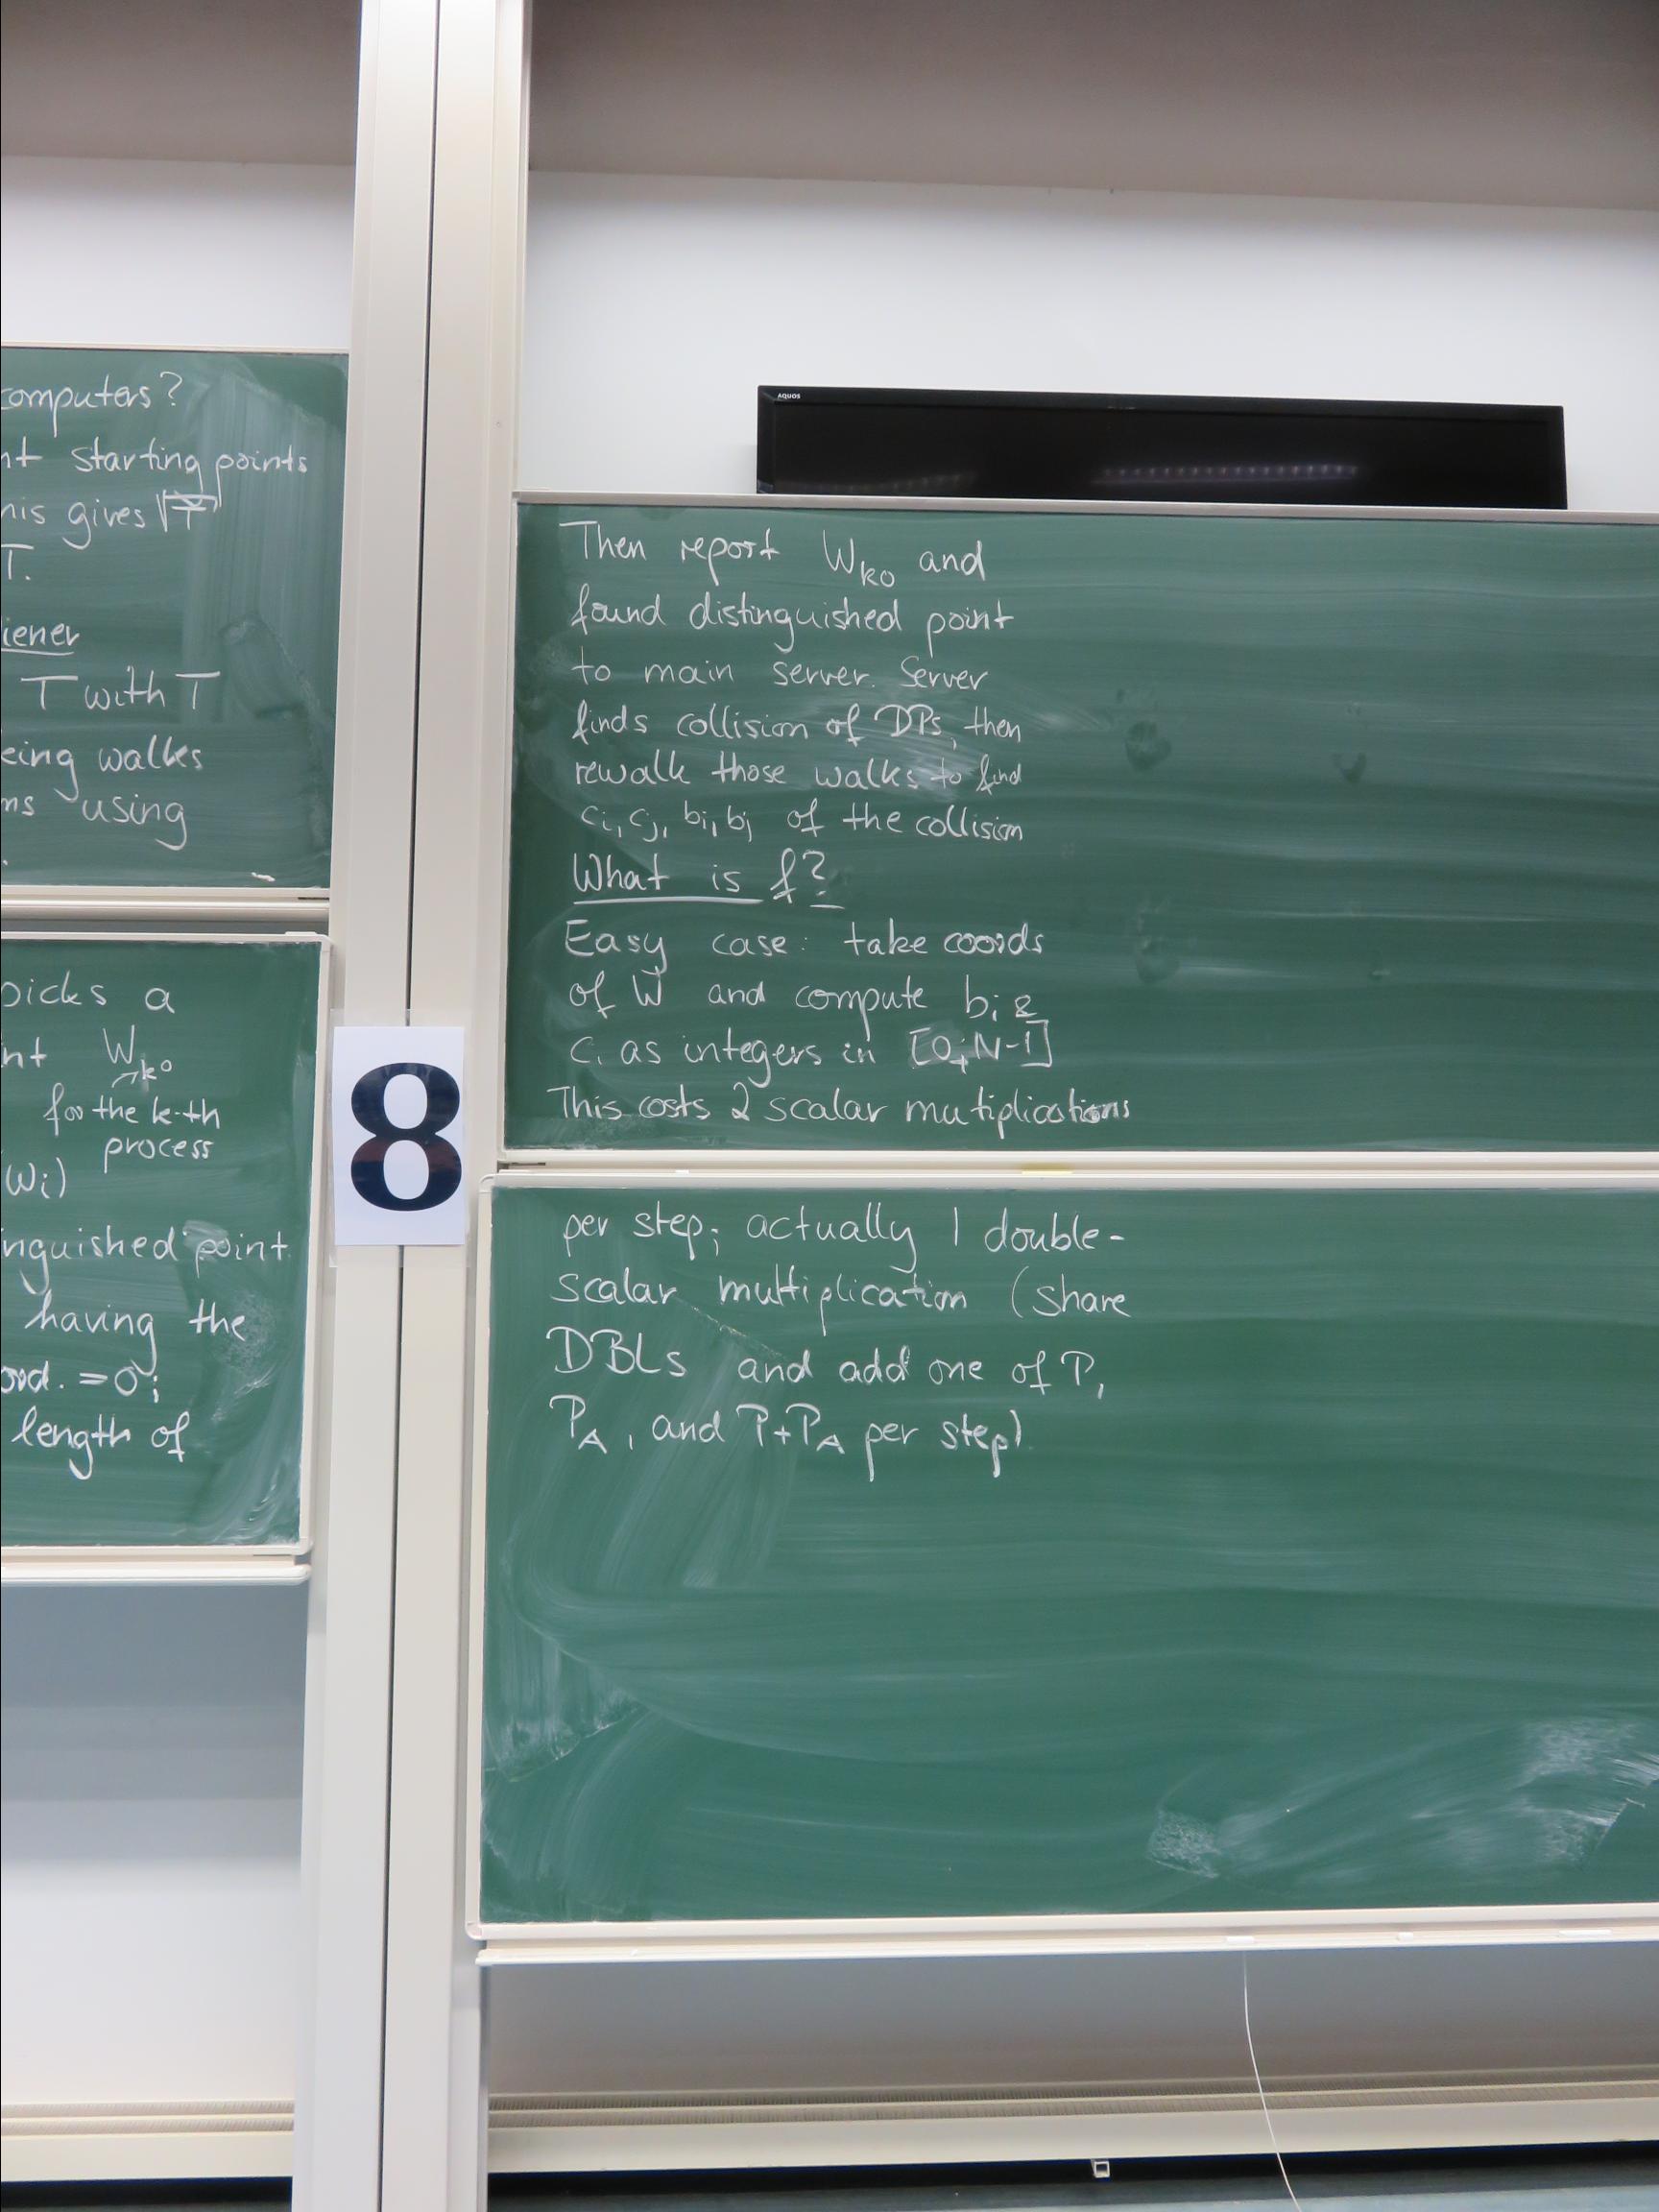 computers?
nt starting points
his gives √T
T.
iener
T with T
eing walks
ms using
picks a
nt Wk0
for the k-th
process
(Wi)
nguished point
having the
ord. = 0;
length of
8
AQUOS
Then report Wk0 and
found distinguished point
to main server. Server
finds collision of DPs, then
rewalk those walks to find
ci, cj, bi, bj of the collision
What is f?
Easy case: take coords
of W and compute bi &
ci as integers in [0, N-1]
This costs 2 scalar mutiplications
per step; actually 1 double-
scalar multiplication (share
DBLs and add one of P,
PA, and P+PA per step)